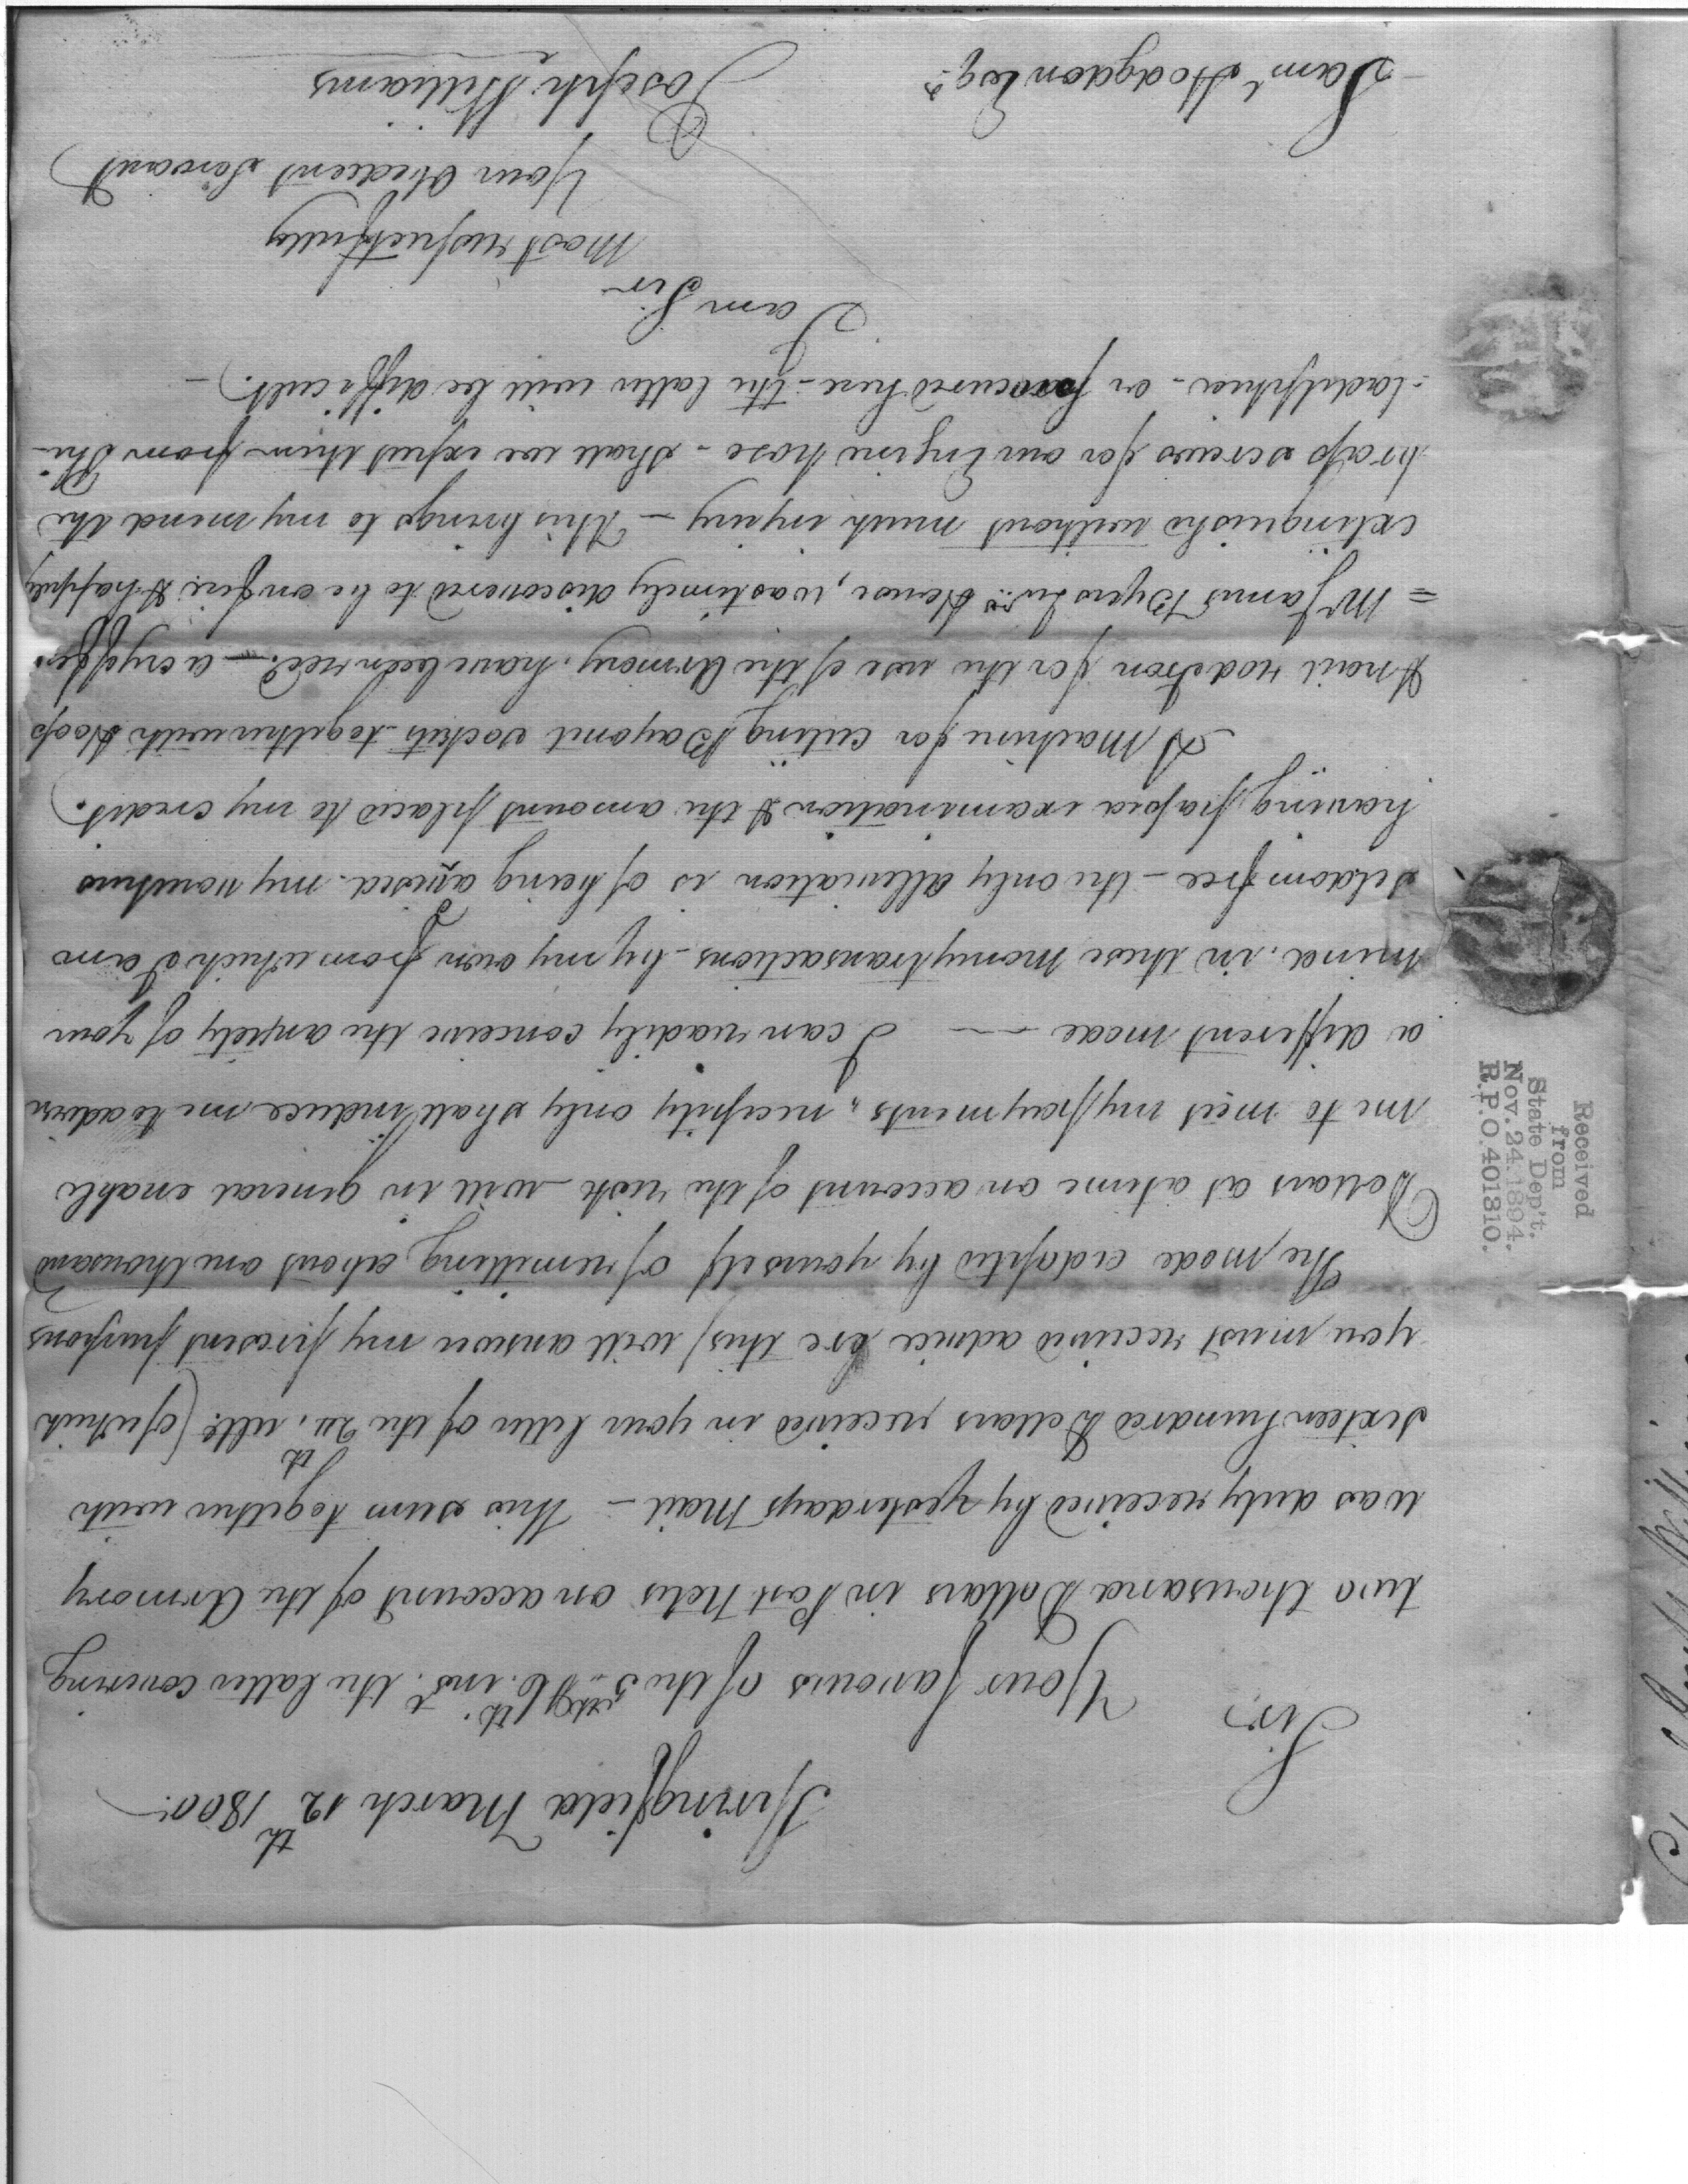 Springfield March 12th 1800.
Sir,
Your favours of the 5th & 6th inst. the latter covering
two thousand Dollars in Post Notes on account of the Armory
was duly received by yesterdays Mail - This sum together with
sixteen hundred Dollars received in your letter of the 24th ulto. (of which
you must received advice ere this) will answer my present purposes
The mode adopted by yourself of remitting about one thousand
Dollars at a time on account of the risk - will in general enable
me to meet my payments, necessity only shall induce me to advise
a different mode —— I can readily conceive the anxiety of your
mind, in these Money transactions - by my own from which I am
seldom free - the only alleviation is of being advised my vouchers
having passed examination & the amount placed to my credit.
A Machine for cutting Bayonet sockets together with Hoop
& nail rod Iron for the use of the Armory, have been recd. - a cry of fire.
= Mr James Byers Junr. House, was timely discovered to be on fire & happily
extinguished without much injury - This brings to my mind the
brass screws for our Engine hose - shall we expect them from Phi-
-ladelphia - or procured here - the latter will be difficult. -
I am Sir
Most respectfully
Your Obedient Servant
Joseph Williams
Saml Hodgdon Esqr
Received
from
State Dep't.
Nov. 24. 1894.
R.P.O. 401310.